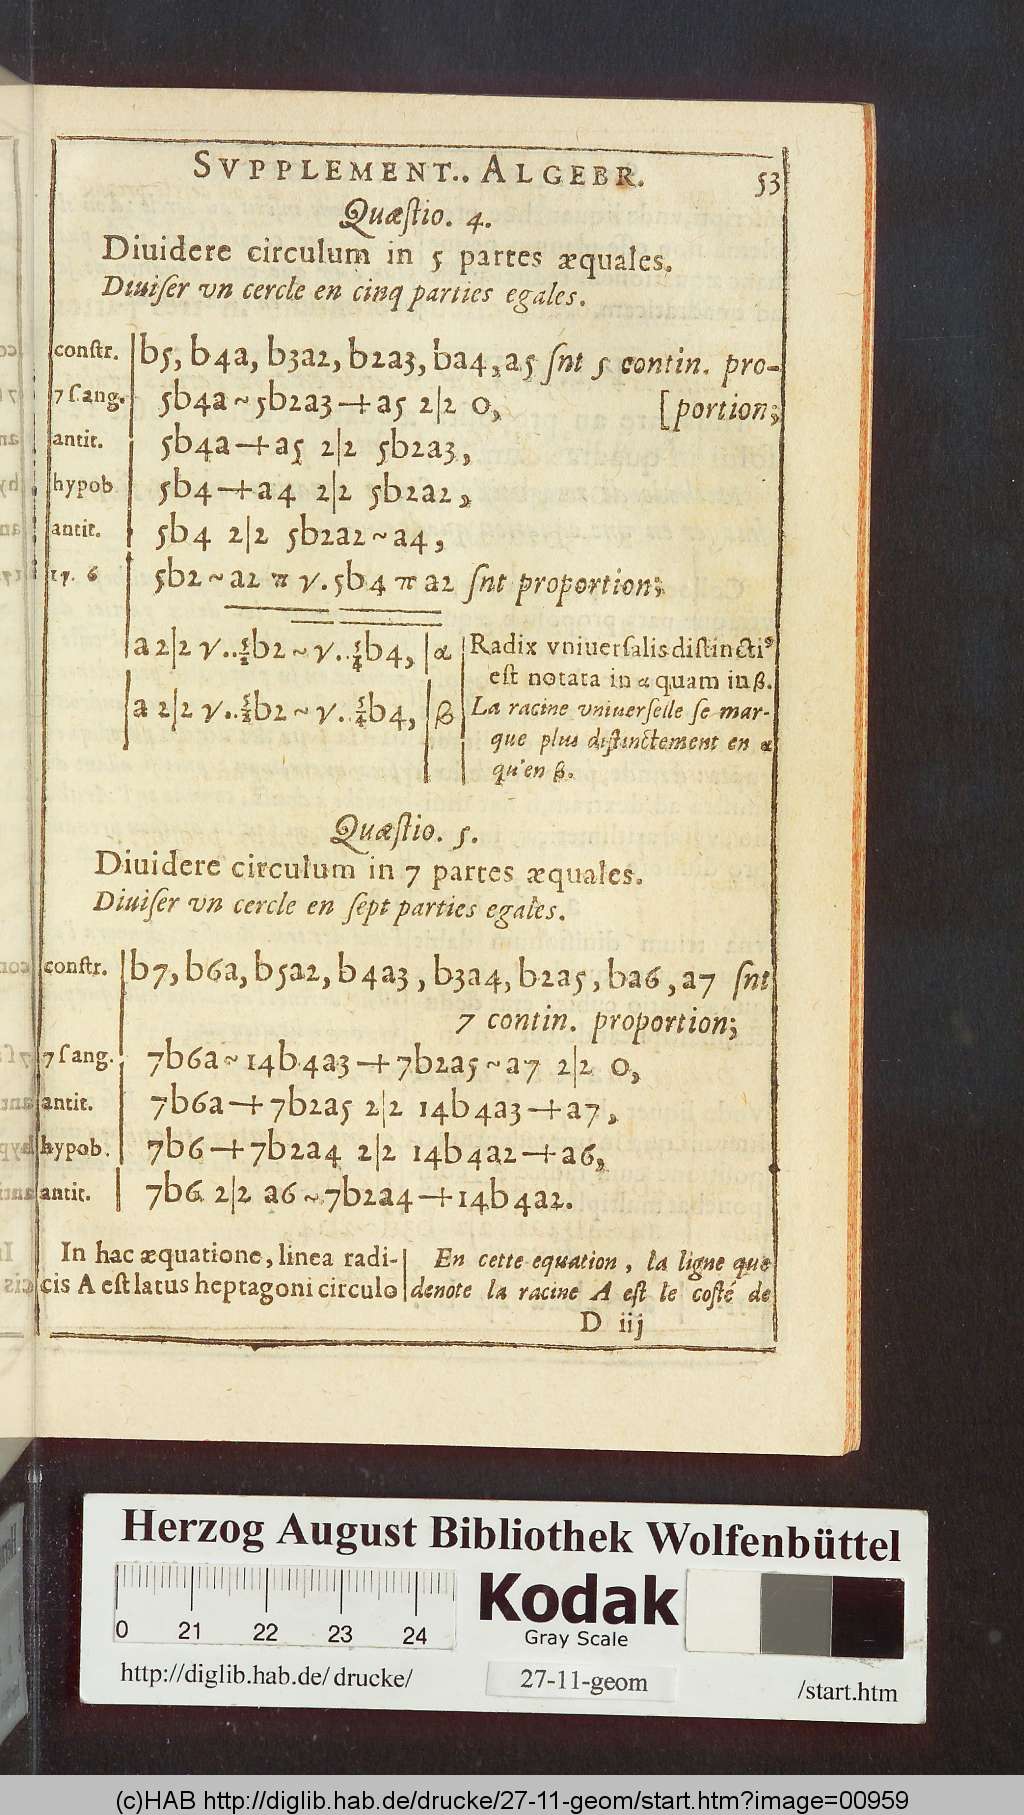 SVPPLEMENT.. ALGEBR. 53
Quæſtio. 4.
Diuidere circulum in 5 partes æquales.
Diuiſer vn cercle en cinq parties egales.
conſtr. b5, b4a, b3a2, b2a3, ba4, a5 ſnt 5 contin. pro-
7 ſ ang. 5b4a ~ 5b2a3 + a5 2|2 0, [portion;
antit. 5b4a + a5 2|2 5b2a3,
hypob 5b4 + a4 2|2 5b2a2,
antit. 5b4 2|2 5b2a2 ~ a4,
17. 6 5b2 ~ a2 π γ. 5b4 π a2 ſnt proportion;
a 2|2 γ.. 5/2 b2 ~ γ.. 5/4 b4, | α | Radix vniuerſalis diſtincti9
eſt notata in α quam in β.
a 2|2 γ.. 5/2 b2 ~ γ.. 5/4 b4, | β | La racine vniuerſelle ſe mar-
que plus diſtinctement en α
qu'en β.
Quæſtio. 5.
Diuidere circulum in 7 partes æquales.
Diuiſer vn cercle en ſept parties egales.
conſtr. b7, b6a, b5a2, b4a3, b3a4, b2a5, ba6, a7 ſnt
7 contin. proportion;
7 ſ ang. 7b6a ~ 14b4a3 + 7b2a5 ~ a7 2|2 0,
antit. 7b6a + 7b2a5 2|2 14b4a3 + a7,
hypob. 7b6 + 7b2a4 2|2 14b4a2 + a6,
antit. 7b6 2|2 a6 ~ 7b2a4 + 14b4a2.
In hac æquatione, linea radi-
cis A eſt latus heptagoni circulo
En cette equation, la ligne que
denote la racine A eſt le coſté de
D iij
Herzog August Bibliothek Wolfenbüttel
0 21 22 23 24
Kodak
Gray Scale
http://diglib.hab.de/drucke/ 27-11-geom /start.htm
(c)HAB http://diglib.hab.de/drucke/27-11-geom/start.htm?image=00959